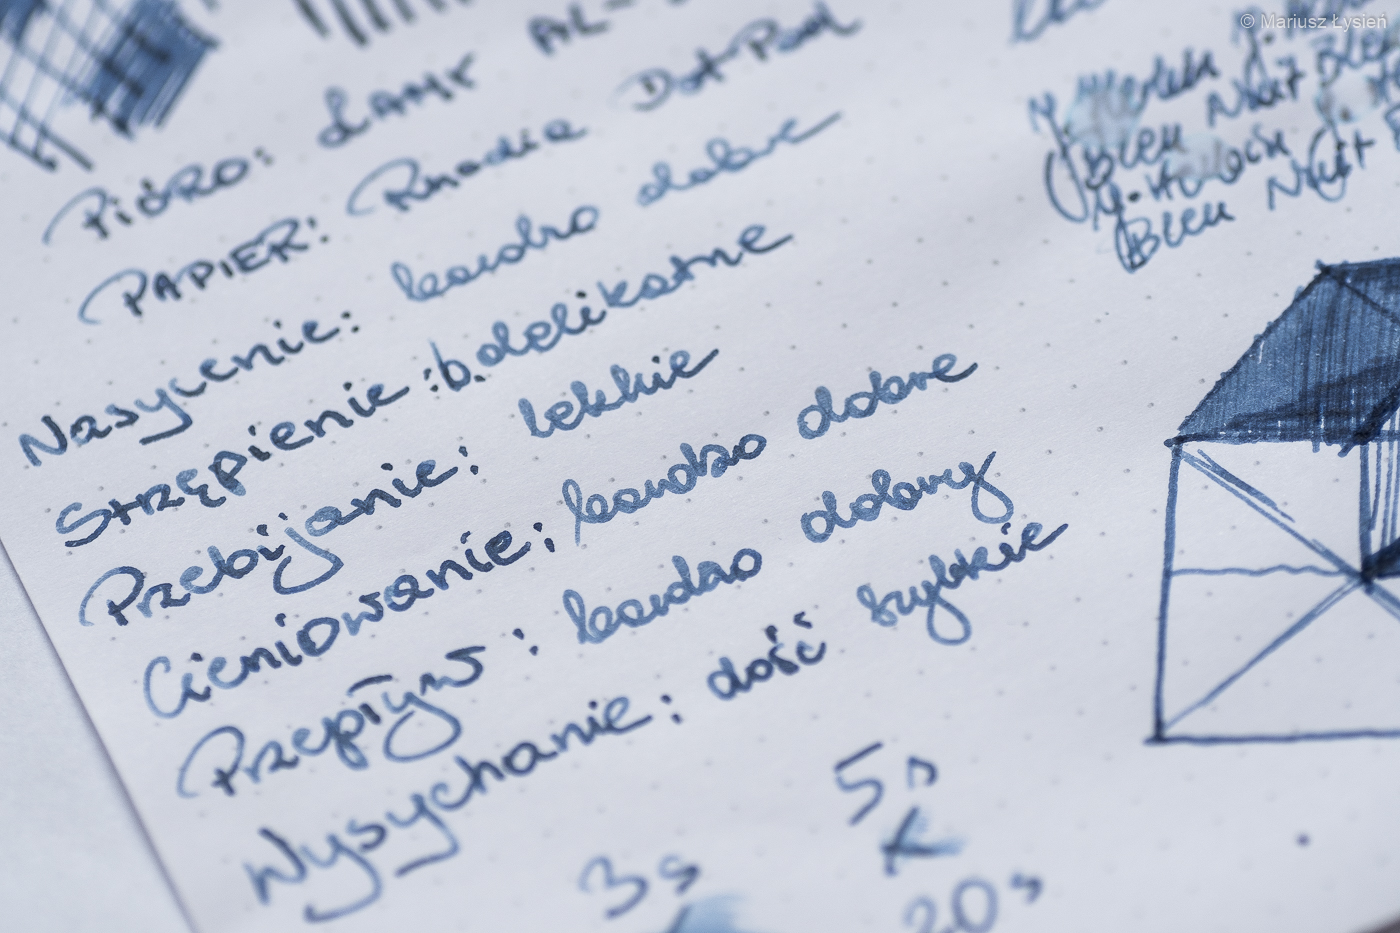 © Mariusz Łysień
Pióro: LAMY AL-
PAPIER: Rhodia Dot Pad
Nasycenie: bardzo dobre
Strzępienie: b. delikatne
Przebijanie: lekkie
Cieniowanie: bardzo dobre
Przepływ: bardzo dobry
Wysychanie: dość szybkie
3s
5s
20s
J. Herbin
Bleu Nuit
J. Herbin
Bleu Nuit